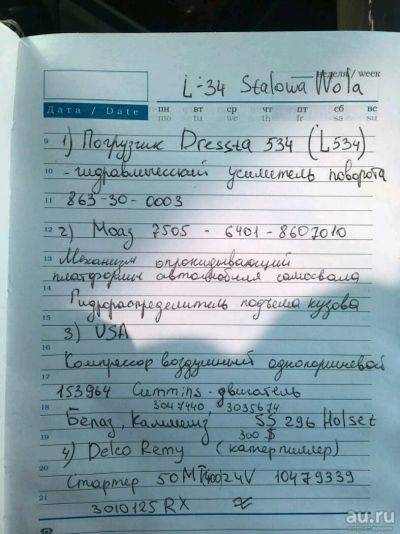 неделя / week
L-34 Stalowa Wola
Дата / Date
пн вт ср чт пт сб вс
mo tu we th fr sa su
9 1) Погрузчик Dressta 534 (L534)
10 - гидравлический усилитель поворота
11 863-30-0003
12 2) Моаз 7505 - 6401 - 8607010
13 Механизм опрокидывающий
14 платформы автомобиля самосвала
Гидрораспределитель подъема кузова
15
3) USA
16
Компрессор воздушный однопоршневой
17
153964 Cummins - двигатель
18 3047440 3035674
Белаз, Камминз SS 296 Holset
19 300 $
4) Delco Remy (катерпиллер)
20
Стартер 50MT(400) 24V 10479339
21 3010125 RX
au.ru